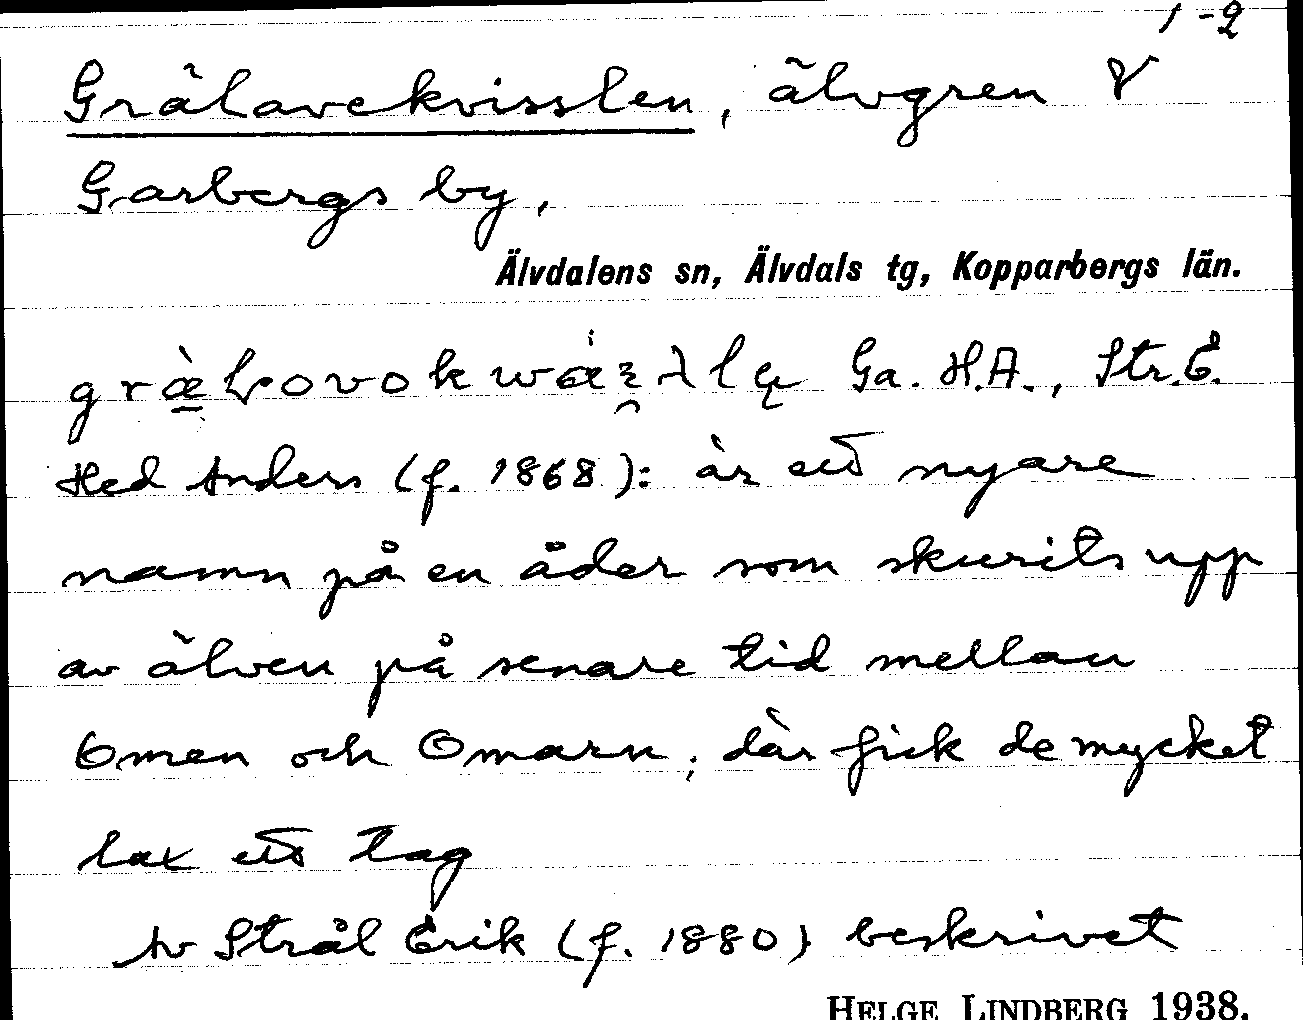 1-2
Grälavekvisslen, älvgren
Garbergs by,
Älvdalens sn, Älvdals tg, Kopparbergs län.
Ga. H.A., Str.E.
Hed Anders (f. 1868): är ett nyare
namn på en åder som skurits upp
av älven på senare tid mellan
Omen och Omarn; där fick de mycket
lax ett tag
Av Strål Erik (f. 1880) beskrivet
HELGE LINDBERG 1938.